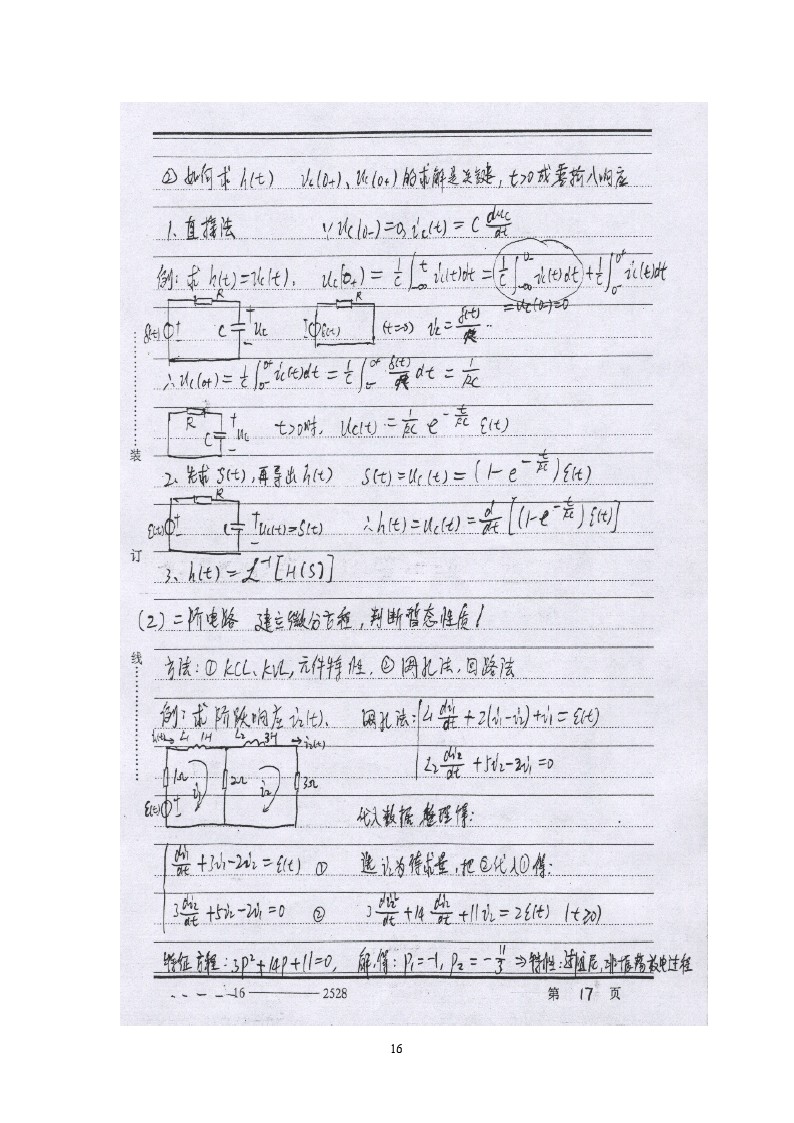 ② 如何求 h(t)  i_L(0+)、u_C(0+) 的求解是关键, t>0 成零输入响应
1. 直接法  ∵ u_C(0-)=0, i_C(t) = C du_C/dt
例: 求 h(t)=u_C(t).  u_C(0+) = 1/C ∫_{-∞}^{t} i_C(t)dt = (1/C ∫_{-∞}^{0-} i_C(t)dt) + 1/C ∫_{0-}^{0+} i_C(t)dt
= u_C(0-)=0
R δ(t) + - C + u_C -
R δ(t) (t=0) i_C = δ(t)/R
∴ u_C(0+) = 1/C ∫_{0-}^{0+} i_C(t)dt = 1/C ∫_{0-}^{0+} δ(t)/R dt = 1/RC
R C + u_C -  t>0时, u_C(t) = 1/RC e^{-t/RC} ε(t)
2. 先求 S(t), 再导出 h(t)  S(t) = u_C(t) = (1-e^{-t/RC}) ε(t)
R ε(t) + - C + u_C(t)=S(t) -  ∴ h(t) = u_C(t) = d/dt [(1-e^{-t/RC}) ε(t)]
3. h(t) = L^{-1}[H(S)]
(2) 二阶电路 建立微分方程, 判断暂态性质!
方法: ① KCL、KVL, 元件特性. ② 网孔法、回路法
例: 求阶跃响应 i_2(t).  网孔法: { L_1 di_1/dt + 2(i_1-i_2) + i_1 = ε(t)
L_2 di_2/dt + 5i_2 - 2i_1 = 0
i_1(t) L_1 1H L_2 3H i_2(t)
1Ω i_1 2Ω i_2 3Ω
ε(t) + -
代入数据整理得:
{ di_1/dt + 3i_1 - 2i_2 = ε(t) ①  选 i_2 为待求量, 把②代入①得:
3 di_2/dt + 5i_2 - 2i_1 = 0 ②  3 di_2²/dt + 14 di_2/dt + 11i_2 = 2ε(t) (t≥0)
特征方程: 3P²+14P+11=0, 解得: P_1=-1, P_2=-11/3 ⇒ 特性: 过阻尼, 非振荡放电过程
装
订
线
16 —— 2528  第 17 页
16